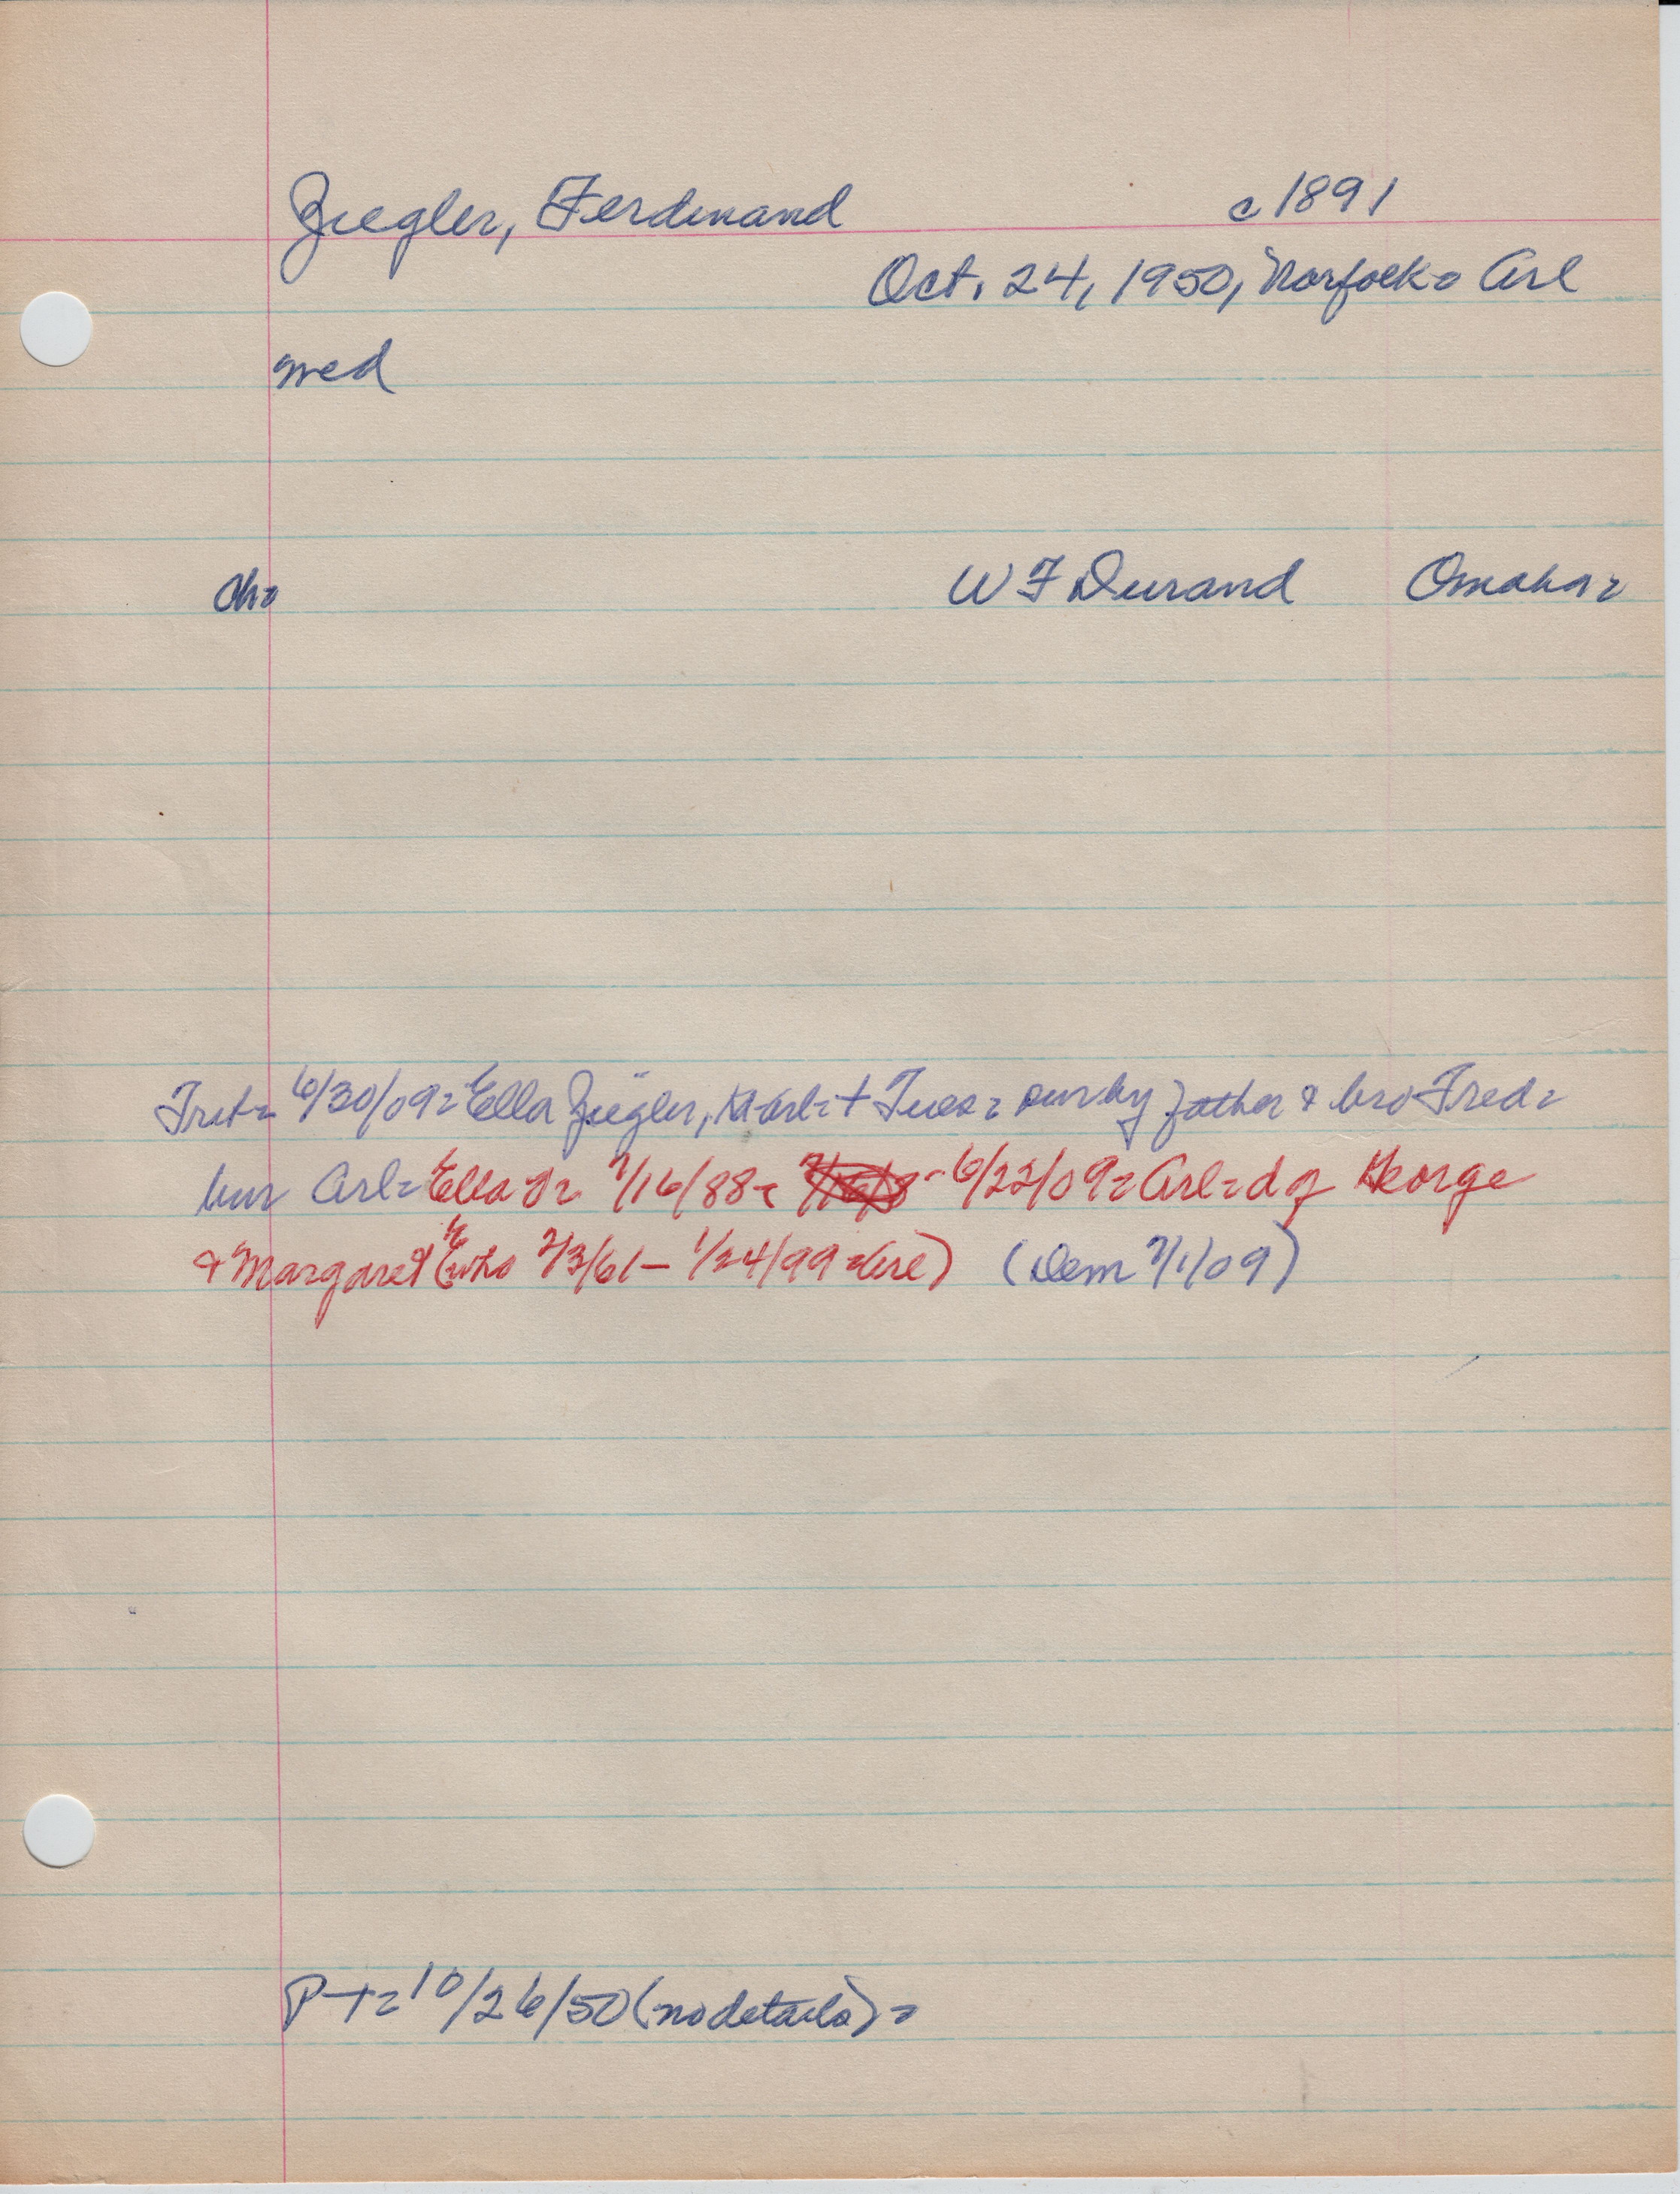 Ziegler, Ferdinand c1891
Oct. 24, 1950, Norfolk= Arl
med
ch= W F Durand Omaha=
Trib= 6/30/09= Ella Ziegler, Arl= + Tues= sur by father & bro Fred=
bur Arl= Ella J= 7/16/88- 6/22/09= Arl= d of George
& Margaret E (who 2/3/61- 1/24/99=Arl) (Dem 7/1/09)
P-T= 10/26/50 (no details)=